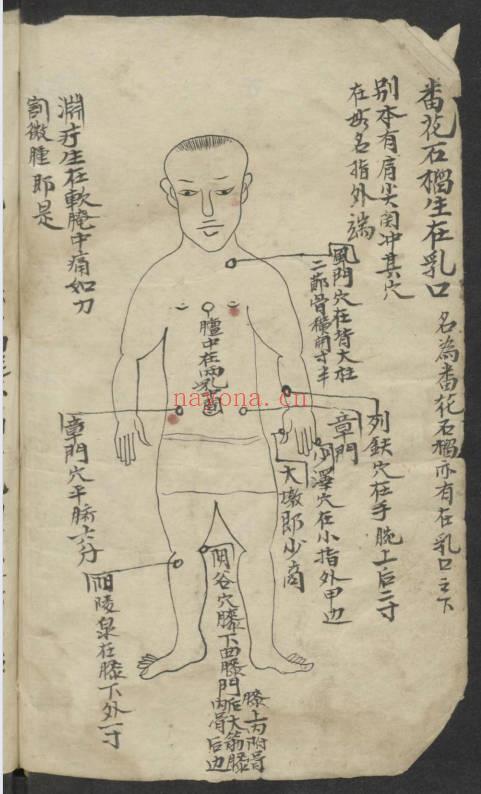 番花石榴生在乳口
名為番花石榴亦有在乳口之下
别本有肩尖関冲其穴
在无名指外端
風門穴在背大柱
二節骨穧開寸半
膻中在两乳
列缺穴在手腕上后二寸
章門
少澤穴在小指外甲边
大墩即少商
淵疔生在軟腌中痛如刀
割微腫即是
章門穴平臍六分
阳陵泉在膝下外一寸
阴谷穴膝下曲膝門
后大筋膝
内骨后边
膝上内附骨
nayona.cn